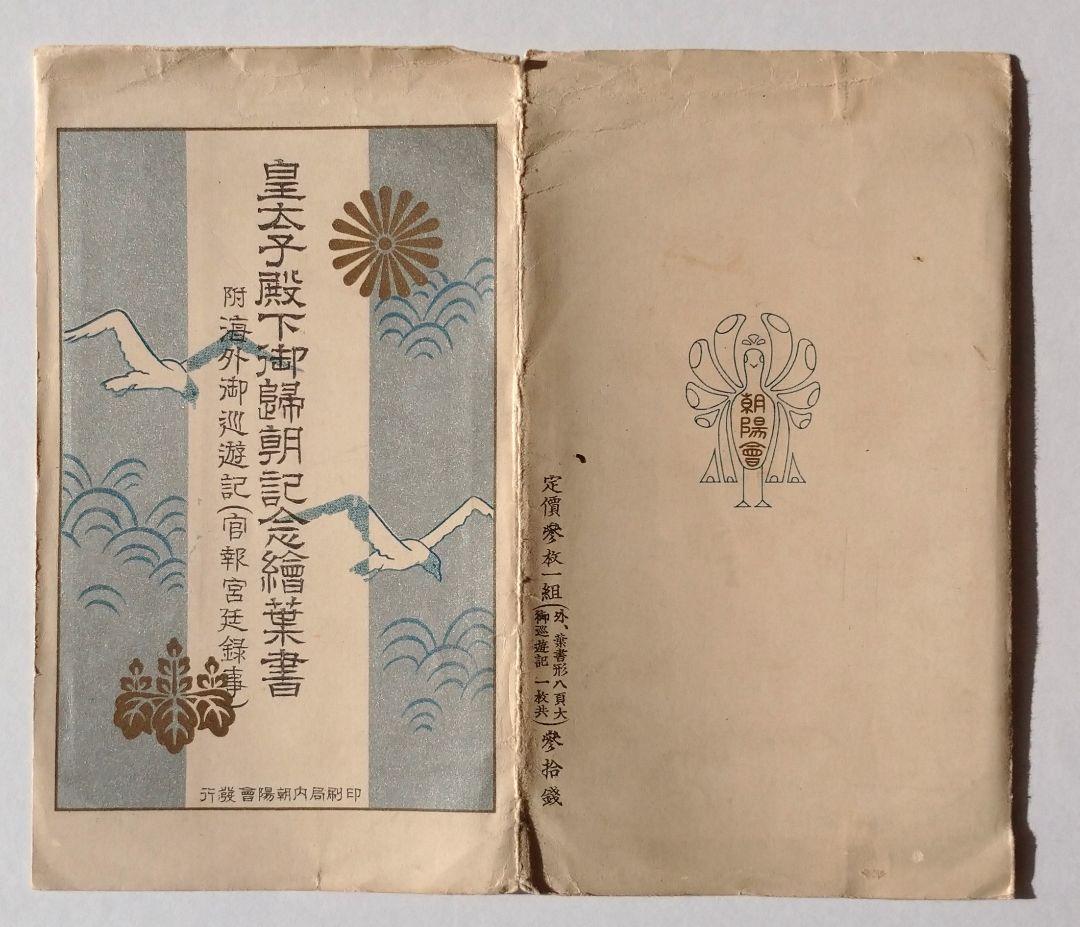 皇太子殿下御歸朝記念繪葉書
附海外御巡遊記(官報宮廷錄事)
印刷局内朝陽會發行
朝陽會
定價參枚一組(外、葉書形八頁大御巡遊記一枚共)參拾錢